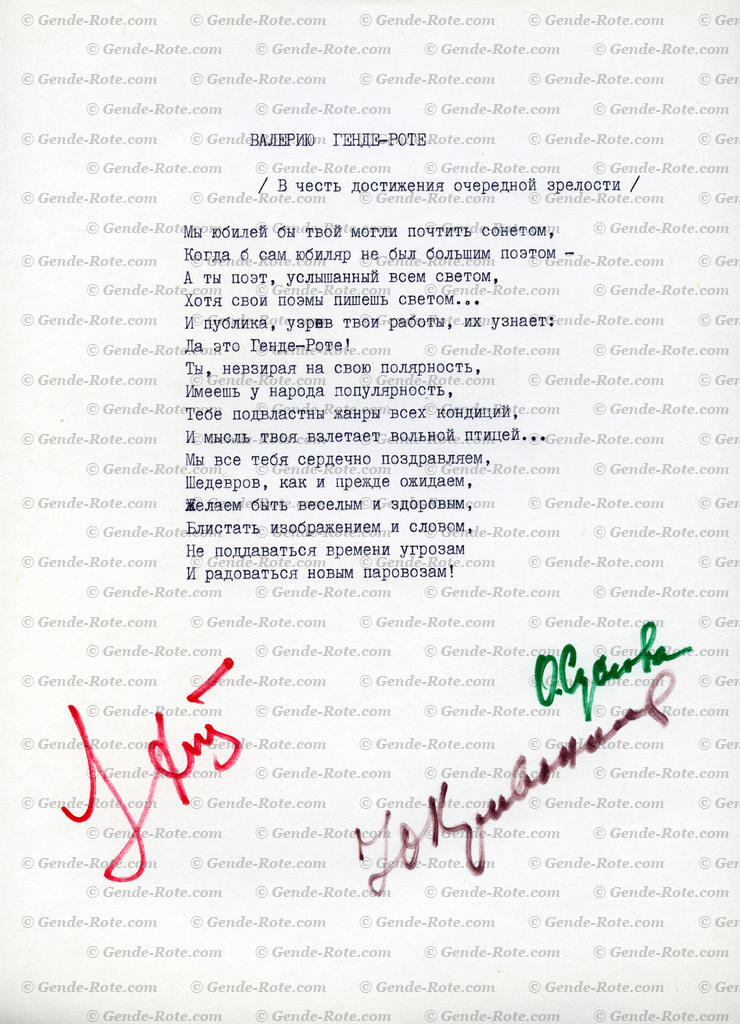 ВАЛЕРИЮ ГЕНДЕ-РОТЕ
/ В честь достижения очередной зрелости /
Мы юбилей бы твой могли почтить сонетом,
Когда б сам юбиляр не был большим поэтом -
А ты поэт, услышанный всем светом,
Хотя свои поэмы пишешь светом...
И публика, узрев твои работы, их узнает:
Да это Генде-Роте!
Ты, невзирая на свою полярность,
Имеешь у народа популярность,
Тебе подвластны жанры всех кондиций,
И мысль твоя взлетает вольной птицей...
Мы все тебя сердечно поздравляем,
Шедевров, как и прежде ожидаем,
Желаем быть веселым и здоровым,
Блистать изображением и словом,
Не поддаваться времени угрозам
И радоваться новым паровозам!
© Gende-Rote.com